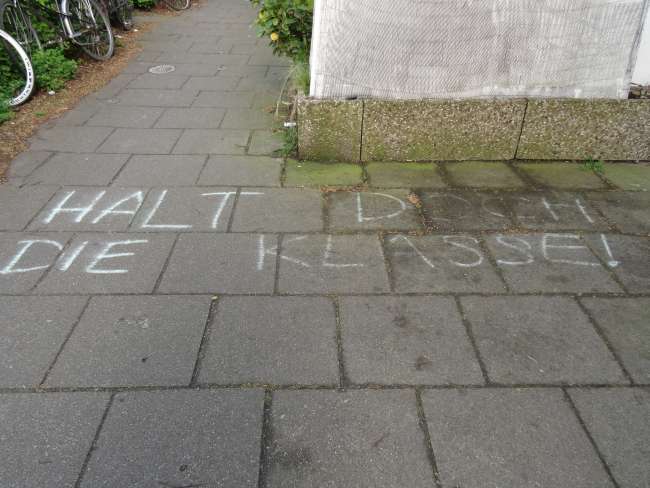 HALT DOCH
DIE KLASSE!